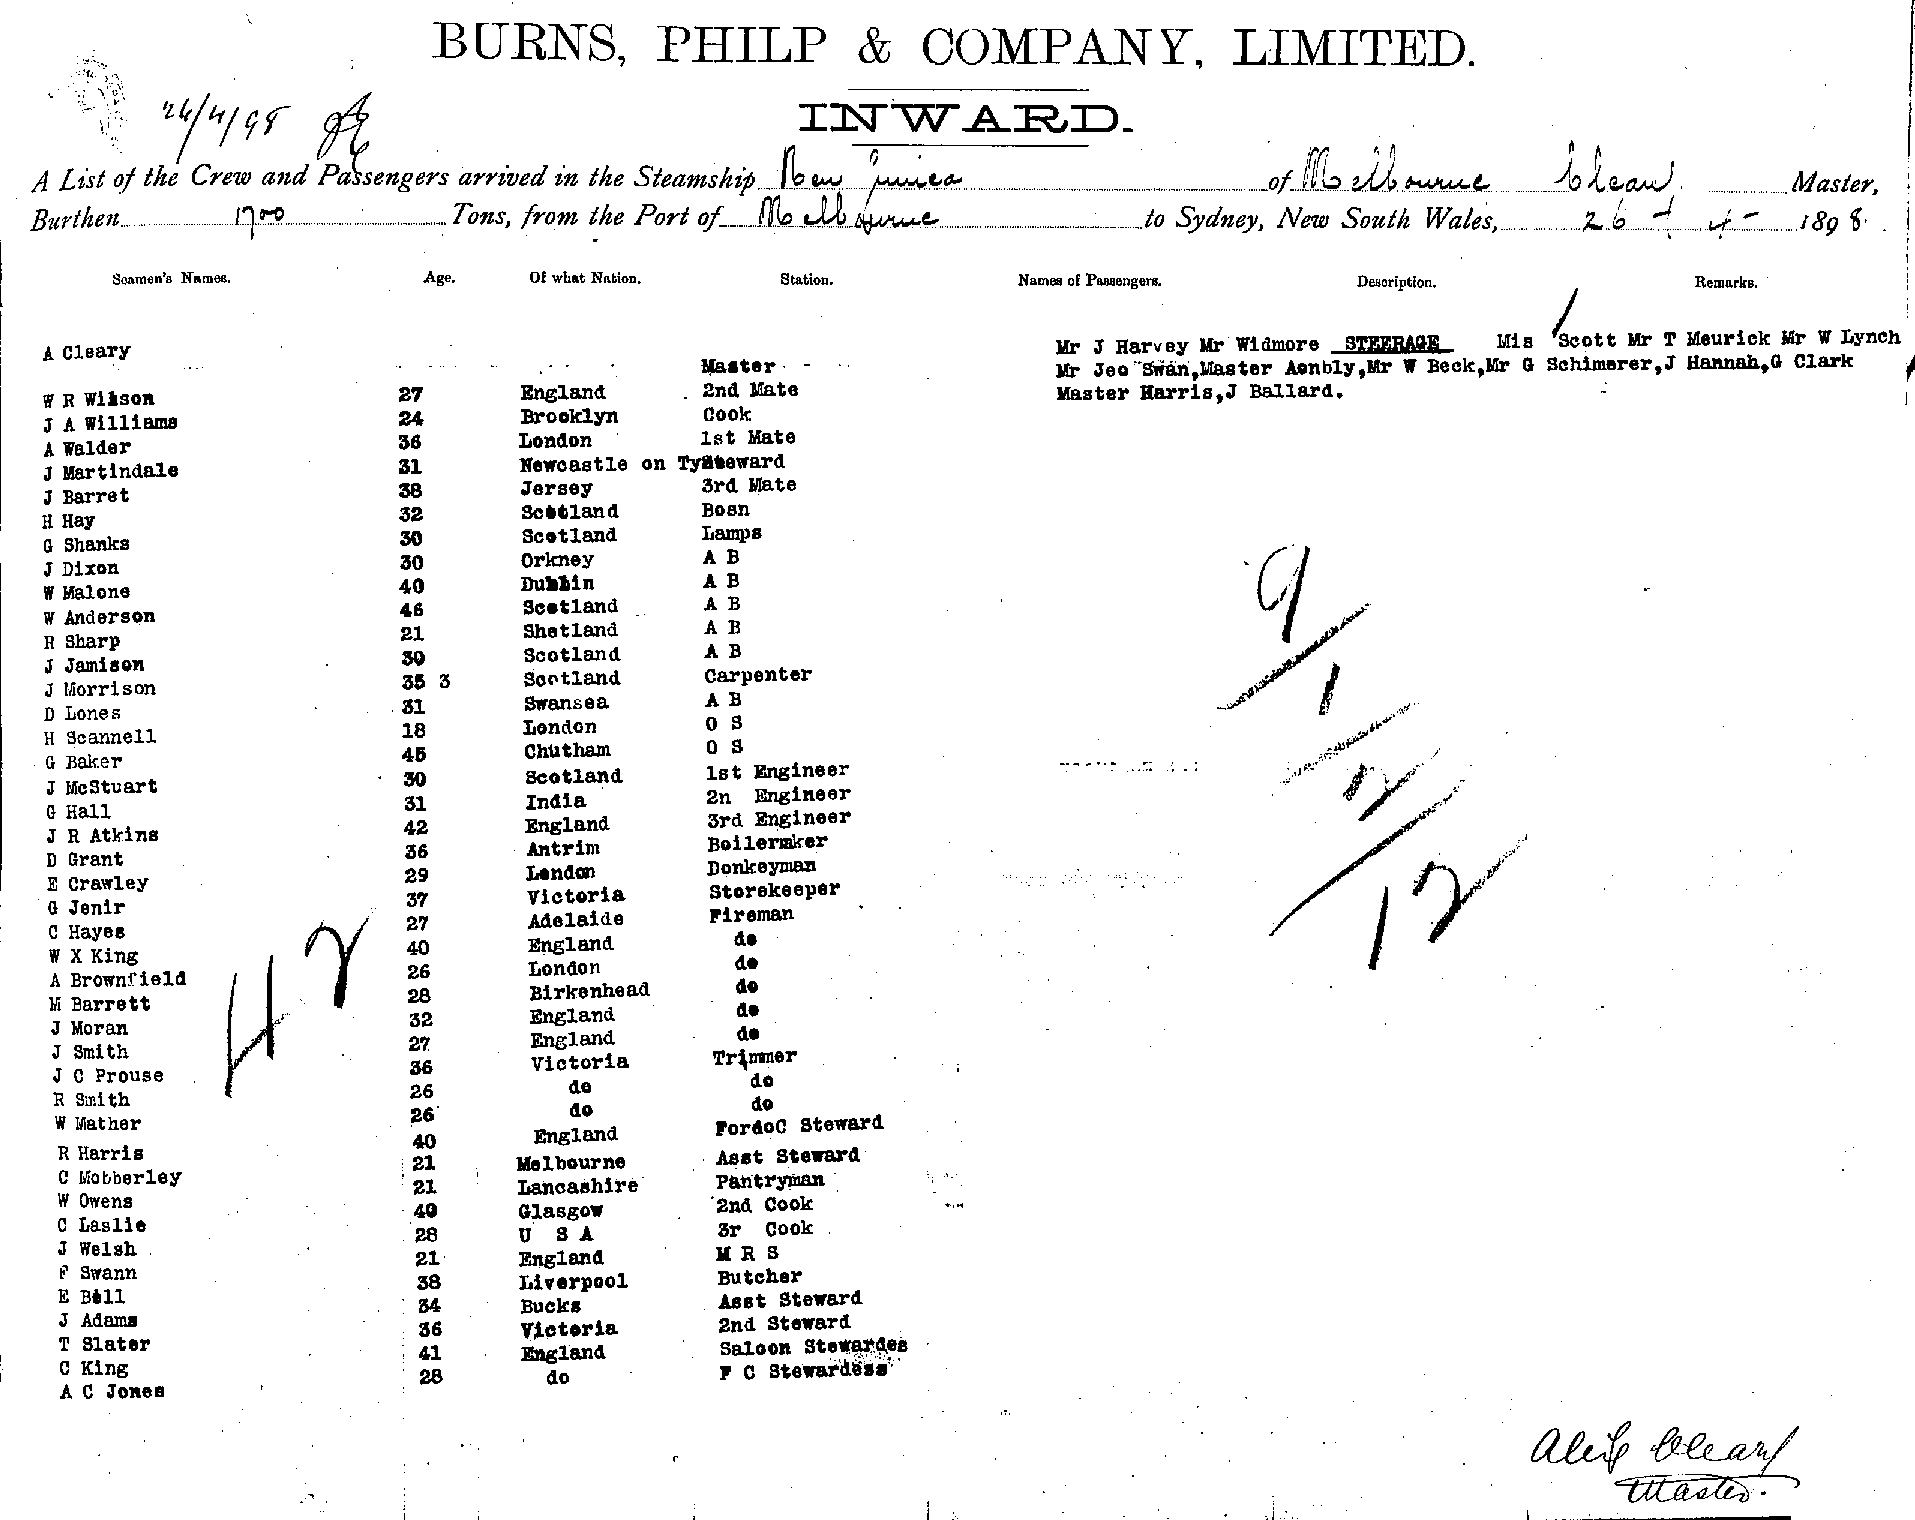 BURNS, PHILP & COMPANY, LIMITED.
INWARD.
26/4/98
A List of the Crew and Passengers arrived in the Steamship New Guinea of Melbourne Cleary Master,
Burthen 1700 Tons, from the Port of Melbourne to Sydney, New South Wales, 26 - 4 - 1898.
Seamen's Names. Age. Of what Nation. Station. Names of Passengers. Description. Remarks.
A Cleary Master
W R Wilson 27 England 2nd Mate
J A Williams 24 Brooklyn Cook
A Walder 36 London 1st Mate
J Martindale 31 Newcastle on Tyne Steward
J Barret 38 Jersey 3rd Mate
H Hay 32 Scotland Bosn
G Shanks 30 Scotland Lamps
J Dixon 30 Orkney A B
W Malone 40 Dublin A B
W Anderson 46 Scotland A B
R Sharp 21 Shetland A B
J Jamison 30 Scotland A B
J Morrison 35 3 Scotland Carpenter
D Lones 31 Swansea A B
H Scannell 18 London O S
G Baker 45 Chutham O S
J McStuart 30 Scotland 1st Engineer
G Hall 31 India 2n Engineer
J R Atkins 42 England 3rd Engineer
D Grant 36 Antrim Boilermker
E Crawley 29 London Donkeyman
G Jenir 37 Victoria Storekeeper
C Hayes 27 Adelaide Fireman
W X King 40 England do
A Brownfield 26 London do
M Barrett 28 Birkenhead do
J Moran 32 England do
J Smith 27 England do
J C Prouse 36 Victoria Trimmer
R Smith 26 do do
W Mather 26 do do
R Harris 40 England FordoC Steward
C Mobberley 21 Melbourne Asst Steward
W Owens 21 Lancashire Pantryman
C Laslie 40 Glasgow 2nd Cook
J Welsh 28 U S A 3r Cook
F Swann 21 England M R S
E Bill 38 Liverpool Butcher
J Adams 34 Bucks Asst Steward
T Slater 36 Victoria 2nd Steward
C King 41 England Saloon Stewardes
A C Jones 28 do F C Stewardess
42
Mr J Harvey Mr Widmore STEERAGE Mis Scott Mr T Meurick Mr W Lynch
Mr Jeo Swan,Master Aenbly,Mr W Beck,Mr G Schimerer,J Hannah,G Clark
Master Harris,J Ballard.
9/1/2/12
Alex Cleary
Master.